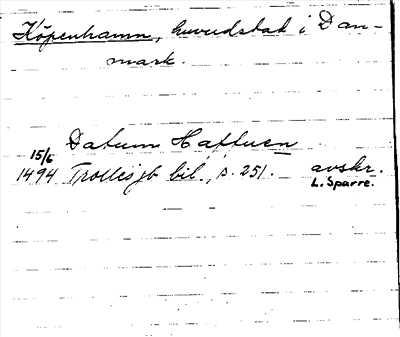 Köpenhamn, huvudstad i Dan-
mark.
Datum Haffuen
15/6
1494 Trollesjb bil., s. 251. avskr.
L. Sparre.